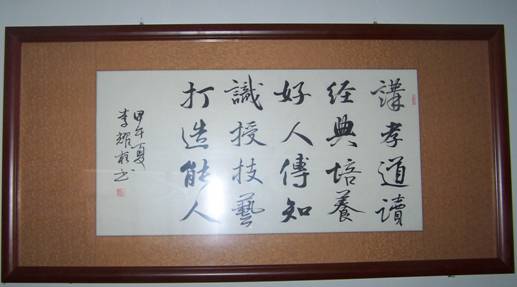 講孝道讀
經典培養
好人傳知
識授技藝
打造能人
甲午夏
李耀
书